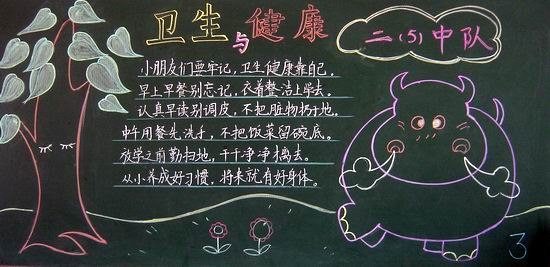 卫生与健康
二(5)中队
小朋友们要牢记，卫生健康靠自己。
早上早餐别忘记，衣着整洁上学去。
认真早读别调皮，不把脏物扔于地。
中午用餐先洗手，不把饭菜留碗底。
放学之前勤扫地，干干净净离去。
从小养成好习惯，将来就有好身体。
3